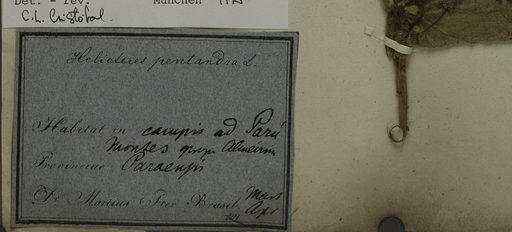 Det. - rev. München
C.L. Cristobal.
Helicteres pentandra L.
Habitat in campis ad Parú
Montes prope Almeirim
Provinciae Paraensis
Dr Martius Iter Brasil.